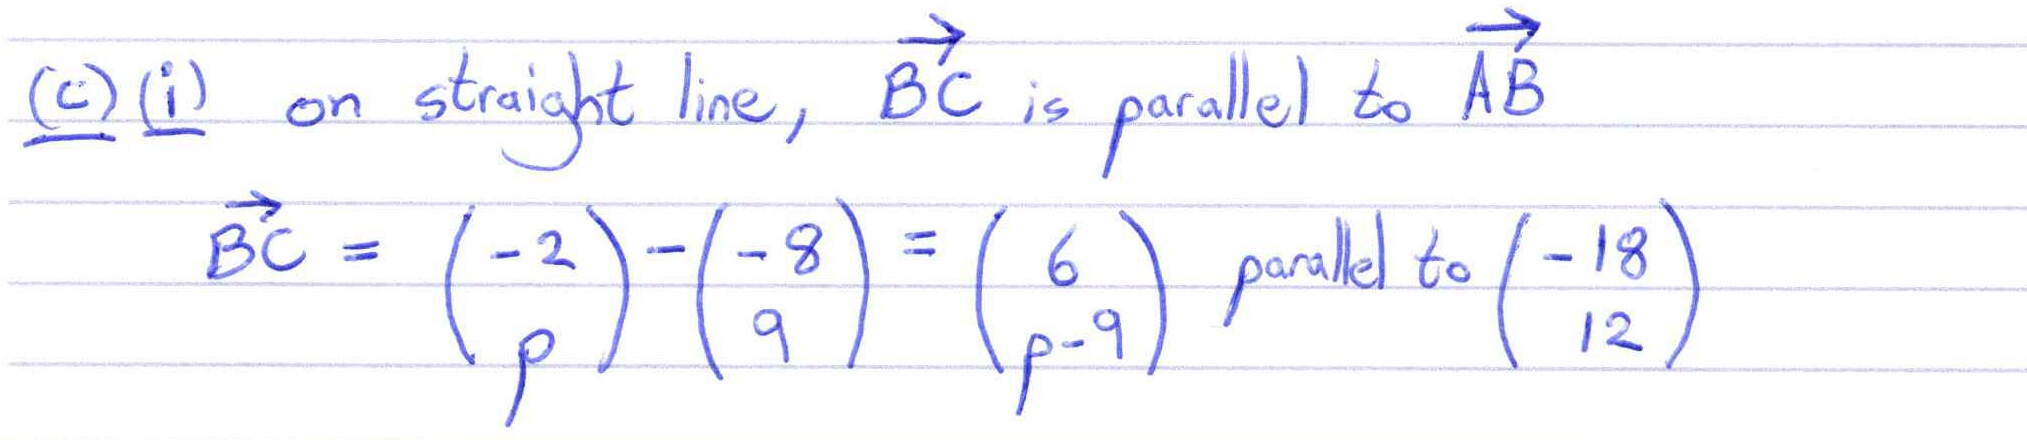 (c) (i) on straight line, $\overrightarrow{BC}$ is parallel to $\overrightarrow{AB}$
$\overrightarrow{BC} = \begin{pmatrix} -2 \\ p \end{pmatrix} - \begin{pmatrix} -8 \\ 9 \end{pmatrix} = \begin{pmatrix} 6 \\ p-9 \end{pmatrix}$ parallel to $\begin{pmatrix} -18 \\ 12 \end{pmatrix}$